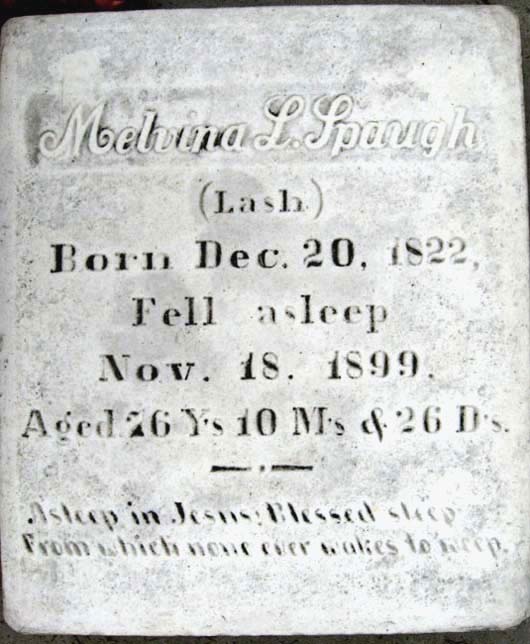 Melvina L. Spaugh
(Lash)
Born Dec. 20, 1822,
Fell asleep
Nov. 18. 1899.
Aged 76 Ys 10 Ms & 26 Ds.
Asleep in Jesus; Blessed sleep
From which none ever wakes to weep.